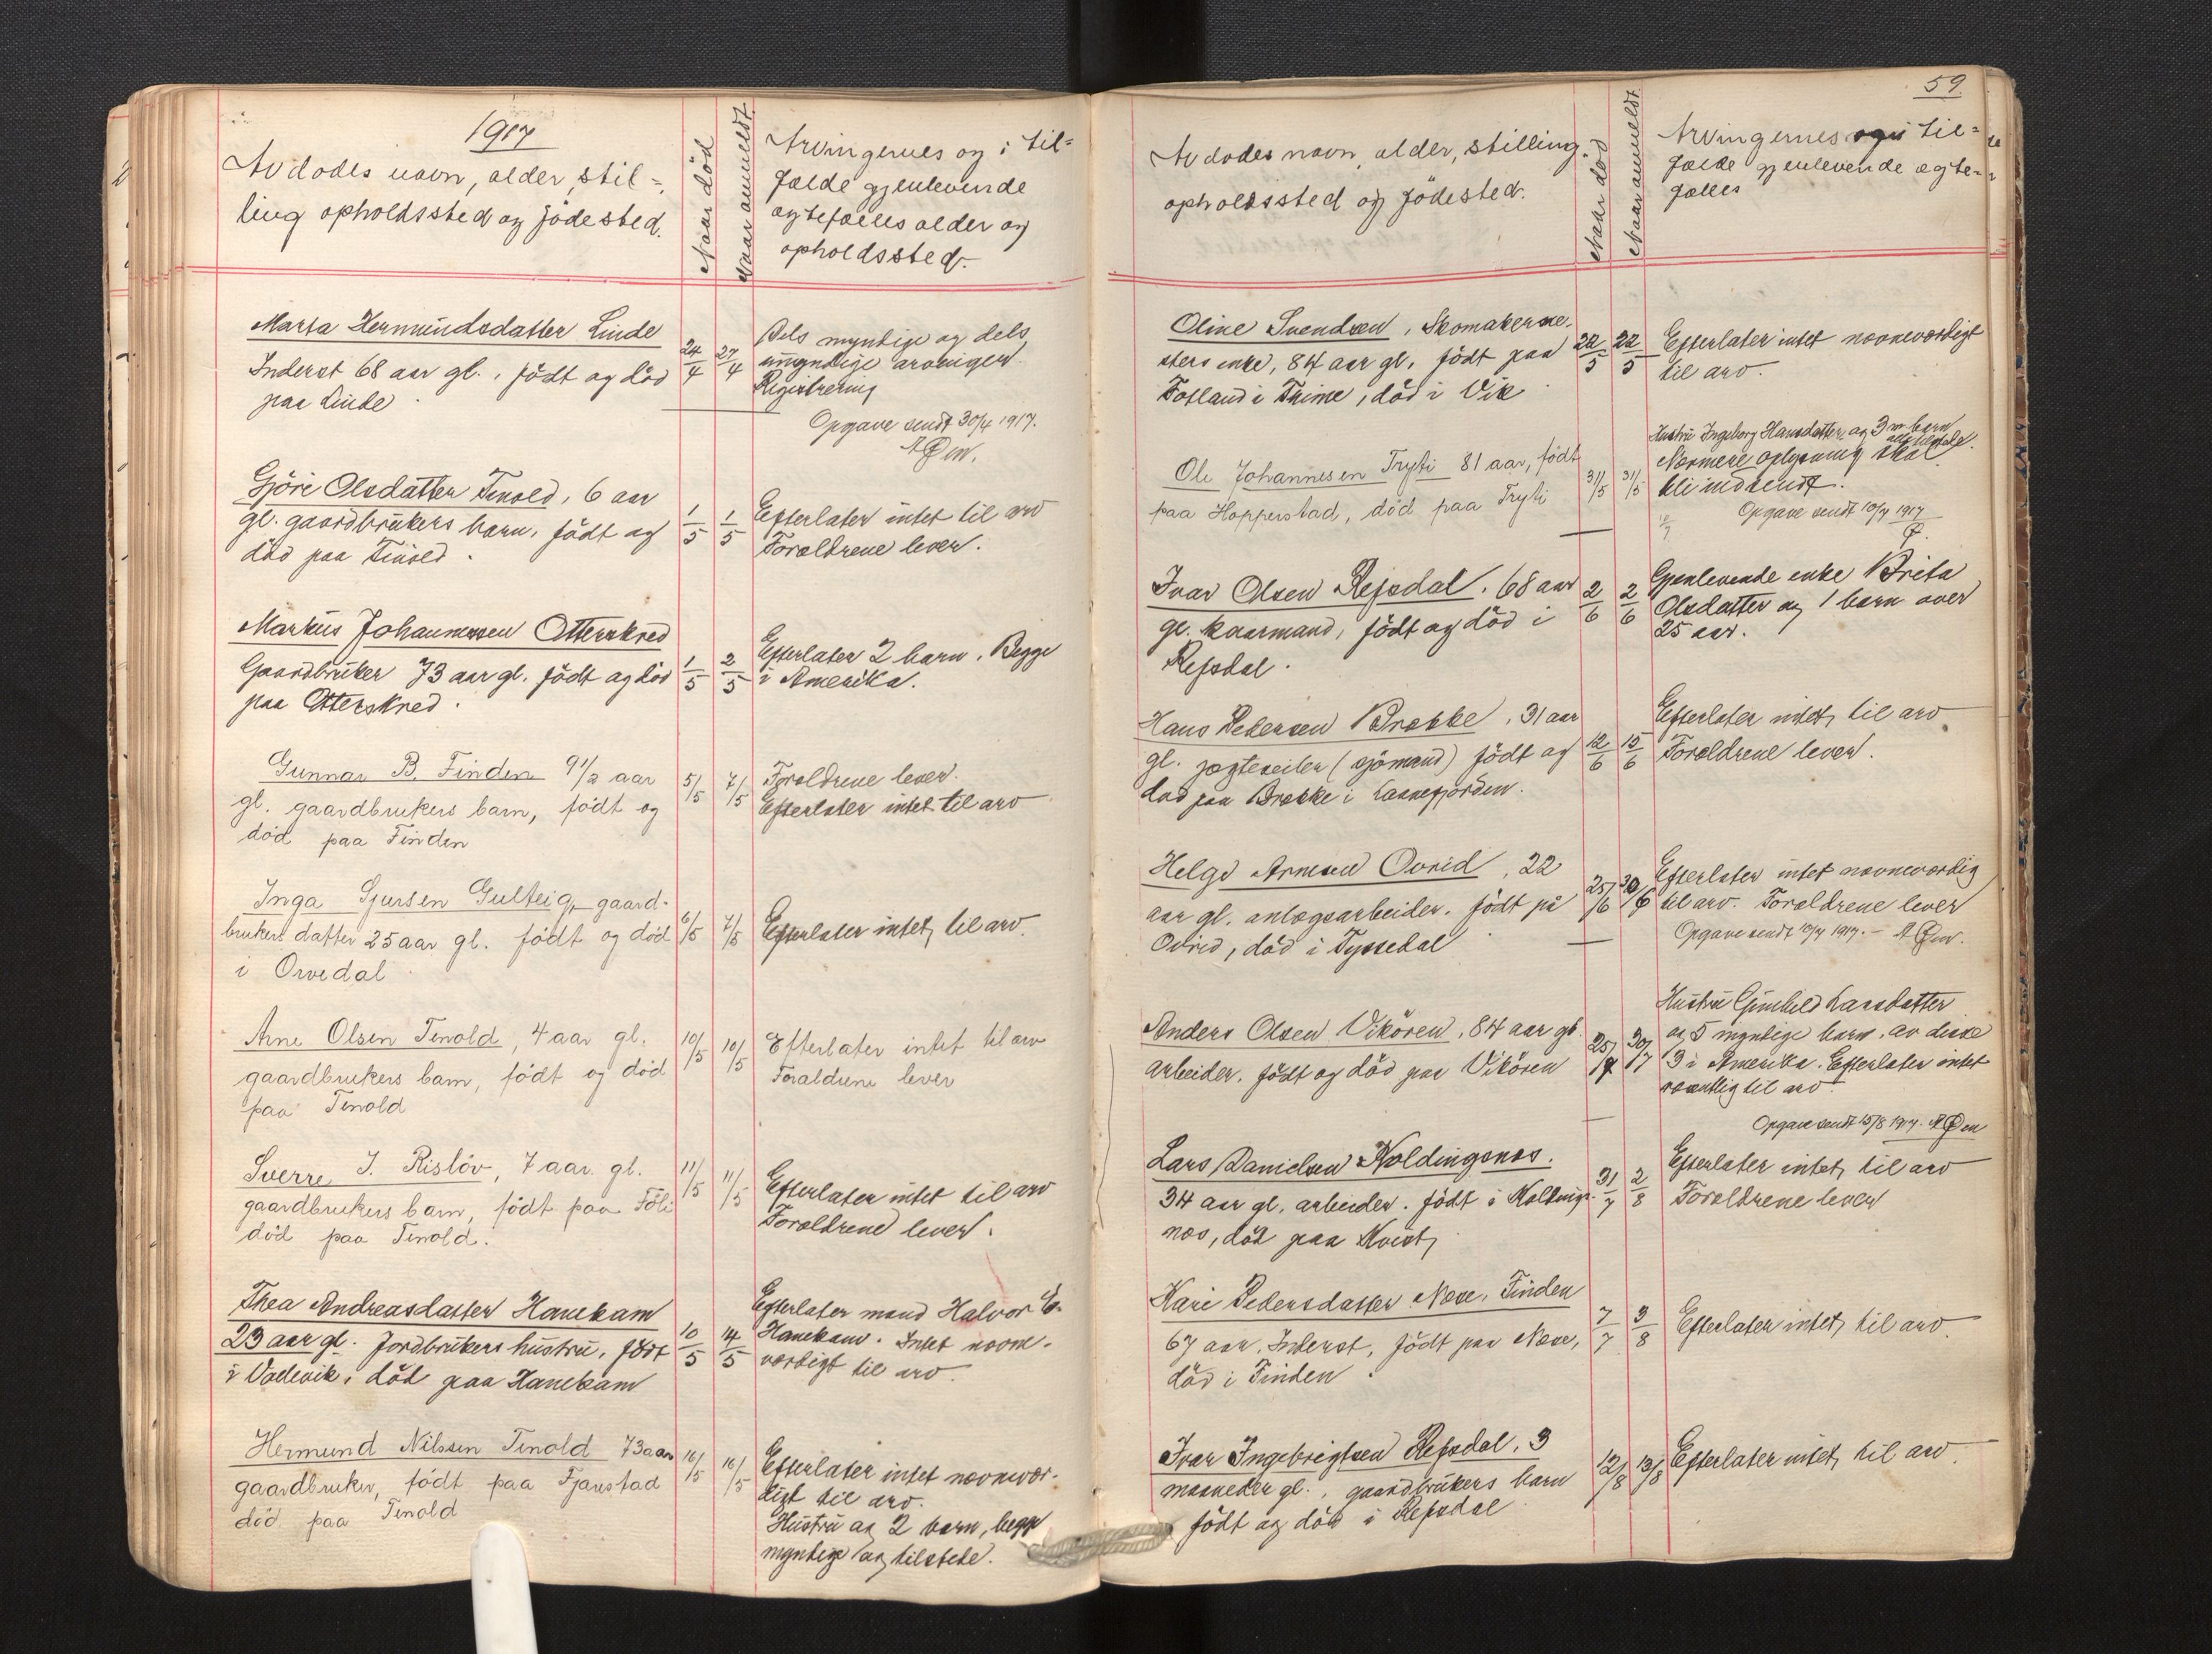 1917
Avdødes navn, alder, stil-
ling opholdssted og fødested.
Naar død
Naar anmeldt
Arvingernes og i til-
fælde gjenlevende
ægtefælles alder og
opholdssted.
Marta Hermundsdatter Linde
Inderst 68 aar gl., født og død
paa Linde
24/4
27/4
Dels myndige og dels
umyndige arvinger.
Registrering
Opgave sendt 30/4 1917.
Gjöri Olsdatter Tenold, 6 aar
gl. gaardbrukers barn, født og
död paa Tenold.
1/5
1/5
Efterlater intet til arv
Foreldrene lever.
Markus Johannessen Otterskred
Gaardbruker 73 aar gl. født og död
paa Otterskred.
1/5
2/5
Efterlater 2 barn. Begge
i Amerika.
Gunnar B. Finden 9 1/2 aar
gl. gaardbrukers barn, født og
död paa Finden
5/5
7/5
Foreldrene lever.
Efterlater intet til arv
Inga Sjursen Gulteig, gaard-
brukers datter 25 aar gl. født og död
i Orvedal
6/5
7/5
Efterlater intet til arv.
Arne Olsen Tenold, 4 aar gl.
gaardbrukers barn, født og död
paa Tenold
10/5
10/5
Efterlater intet til arv
Foraldrene lever
Sverre J. Rislöv, 7 aar gl.
gaardbrukers barn, født paa Föli
död paa Tenold.
11/5
11/5
Efterlater intet til arv
Foraldrene lever.
Thea Andreasdatter Hanekam
23 aar gl. Jordbrukers hustru, født
i Vadevik, död paa Hanekam
10/5
14/5
Efterlater mand Halvor E.
Hanekam. Intet navn-
værdigt til arv.
Hermund Nilssen Tenold 73 aar
gaardbruker, født paa Fjærestad
död paa Tenold
16/5
16/5
Efterlater intet navnevær-
digt til arv.
Hustru og 2 barn, begge
myndige og tilstede.
59
Avdødes navn, alder, stilling
opholdssted og fødested.
Naar død
Naar anmeldt
Arvingernes og i til-
fælde gjenlevende ægte-
fælles
Oline Svendsen, Skomakerme-
sters enke, 84 aar gl., født paa
Fotland i Thime, död i Vik
22/5
22/5
Efterlater intet navneværdigt
til arv.
Ole Johannesen Tryti 81 aar, født
paa Hopperstad, død paa Tryti
31/5
31/5
Hustru Ingeborg Hansdatter og 3 m. barn
alle tilstede.
Nærmere oplysning skal
bli indsendt.
Opgave sendt 10/7 1917
Ivar Olsen Refsdal, 68 aar
gl. kaarmand, født og död i
Refsdal.
2/6
2/6
Gjenlevende enke Brita
Olsdatter og 1 barn over
25 aar.
Hans Pedersen Brekke, 31 aar
gl. jægteseiler (sjömand) født og
död paa Brekke i Lannefjorden.
12/6
15/6
Efterlater intet til arv
Foreldrene lever.
Helge Arnesen Ovrid, 22
aar gl. anlægsarbeider. født på
Ovrid, död i Tyssedal
25/6
30/6
Efterlater intet navneværdig
til arv. Foreldrene lever
Opgave sendt 10/7 1917.
Anders Olsen Vikören, 84 aar gl.
arbeider, født og död paa Vikören
25/7
30/7
Hustru Gunhild Larsdatter
og 5 myndige barn, av disse
3 i Amerika. Efterlater intet
væsentlig til arv.
Opgave sendt 15/8 1917.
Lars DanielsenHoldingsnes.
34 aar gl. arbeider. født i Holdings-
nes, död paa Kvist
31/7
2/8
Efterlater intet til arv
Foreldrene lever
Kari Pedersdatter Nese, Finden
67 aar. Inderst, født paa Nese,
död i Finden
7/7
3/8
Efterlater intet til arv.
Ivar Ingebrigtsen Refsdal, 3
maaneder gl., gaardbrukers barn
født og död i Refsdal
12/8
13/8
Efterlater intet til arv.